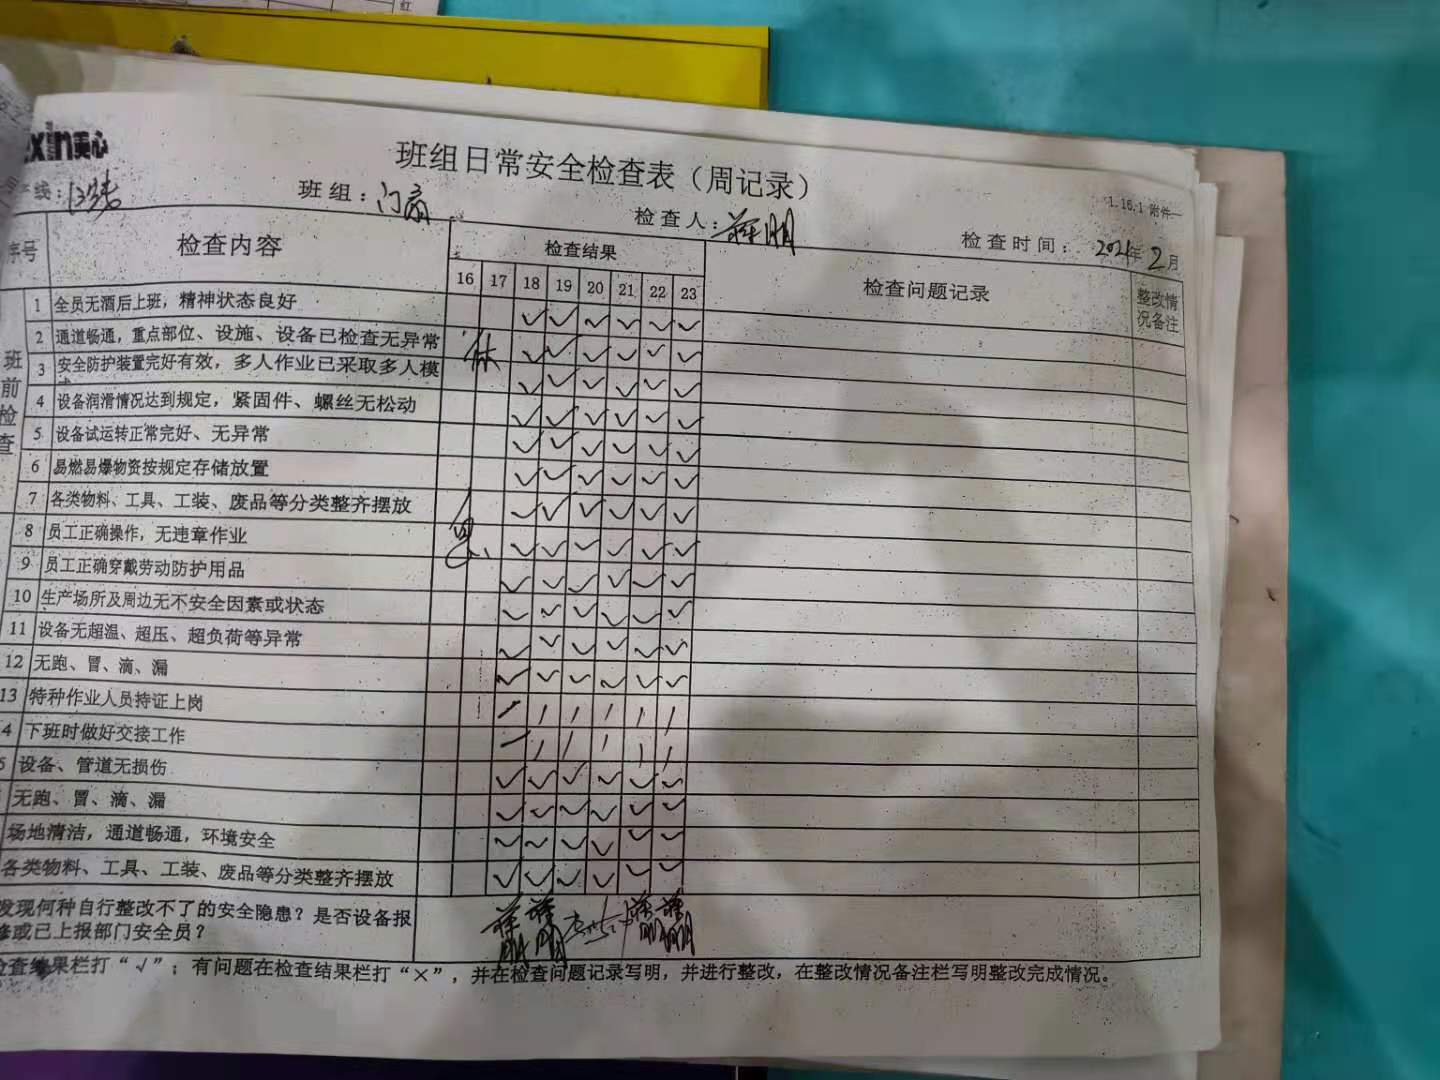 xin美心
班组日常安全检查表（周记录）
1.16.1 附件一
产线：
班组：门扇
检查人：蒋明
检查时间：2021年2月
序号
检查内容
检查结果
检查问题记录
整改情况备注
16 17 18 19 20 21 22 23
班前检查
1 全员无酒后上班，精神状态良好 √ √ √ √ √ √
2 通道畅通，重点部位、设施、设备已检查无异常 √ √ √ √ √ √
休
3 安全防护装置完好有效，多人作业已采取多人模 √ √ √ √ √ √
4 设备润滑情况达到规定，紧固件、螺丝无松动 √ √ √ √ √ √
5 设备试运转正常完好、无异常 √ √ √ √ √ √
6 易燃易爆物资按规定存储放置 √ √ √ √ √ √
7 各类物料、工具、工装、废品等分类整齐摆放 √ √ √ √ √ √
息
8 员工正确操作，无违章作业 √ √ √ √ √ √
9 员工正确穿戴劳动防护用品 √ √ √ √ √ √
10 生产场所及周边无不安全因素或状态 √ √ √ √ √ √
11 设备无超温、超压、超负荷等异常 √ √ √ √ √ √
12 无跑、冒、滴、漏 √ √ √ √ √ √
13 特种作业人员持证上岗 / / / / / /
4 下班时做好交接工作 / / / / / /
5 设备、管道无损伤 √ √ √ √ √ √
无跑、冒、滴、漏 √ √ √ √ √ √
场地清洁，通道畅通，环境安全 √ √ √ √ √ √
各类物料、工具、工装、废品等分类整齐摆放 √ √ √ √ √ √
发现何种自行整改不了的安全隐患？是否设备报
修或已上报部门安全员？
蒋明 蒋明 蒋明 蒋明
检查结果栏打“√”；有问题在检查结果栏打“×”，并在检查问题记录写明，并进行整改，在整改情况备注栏写明整改完成情况。